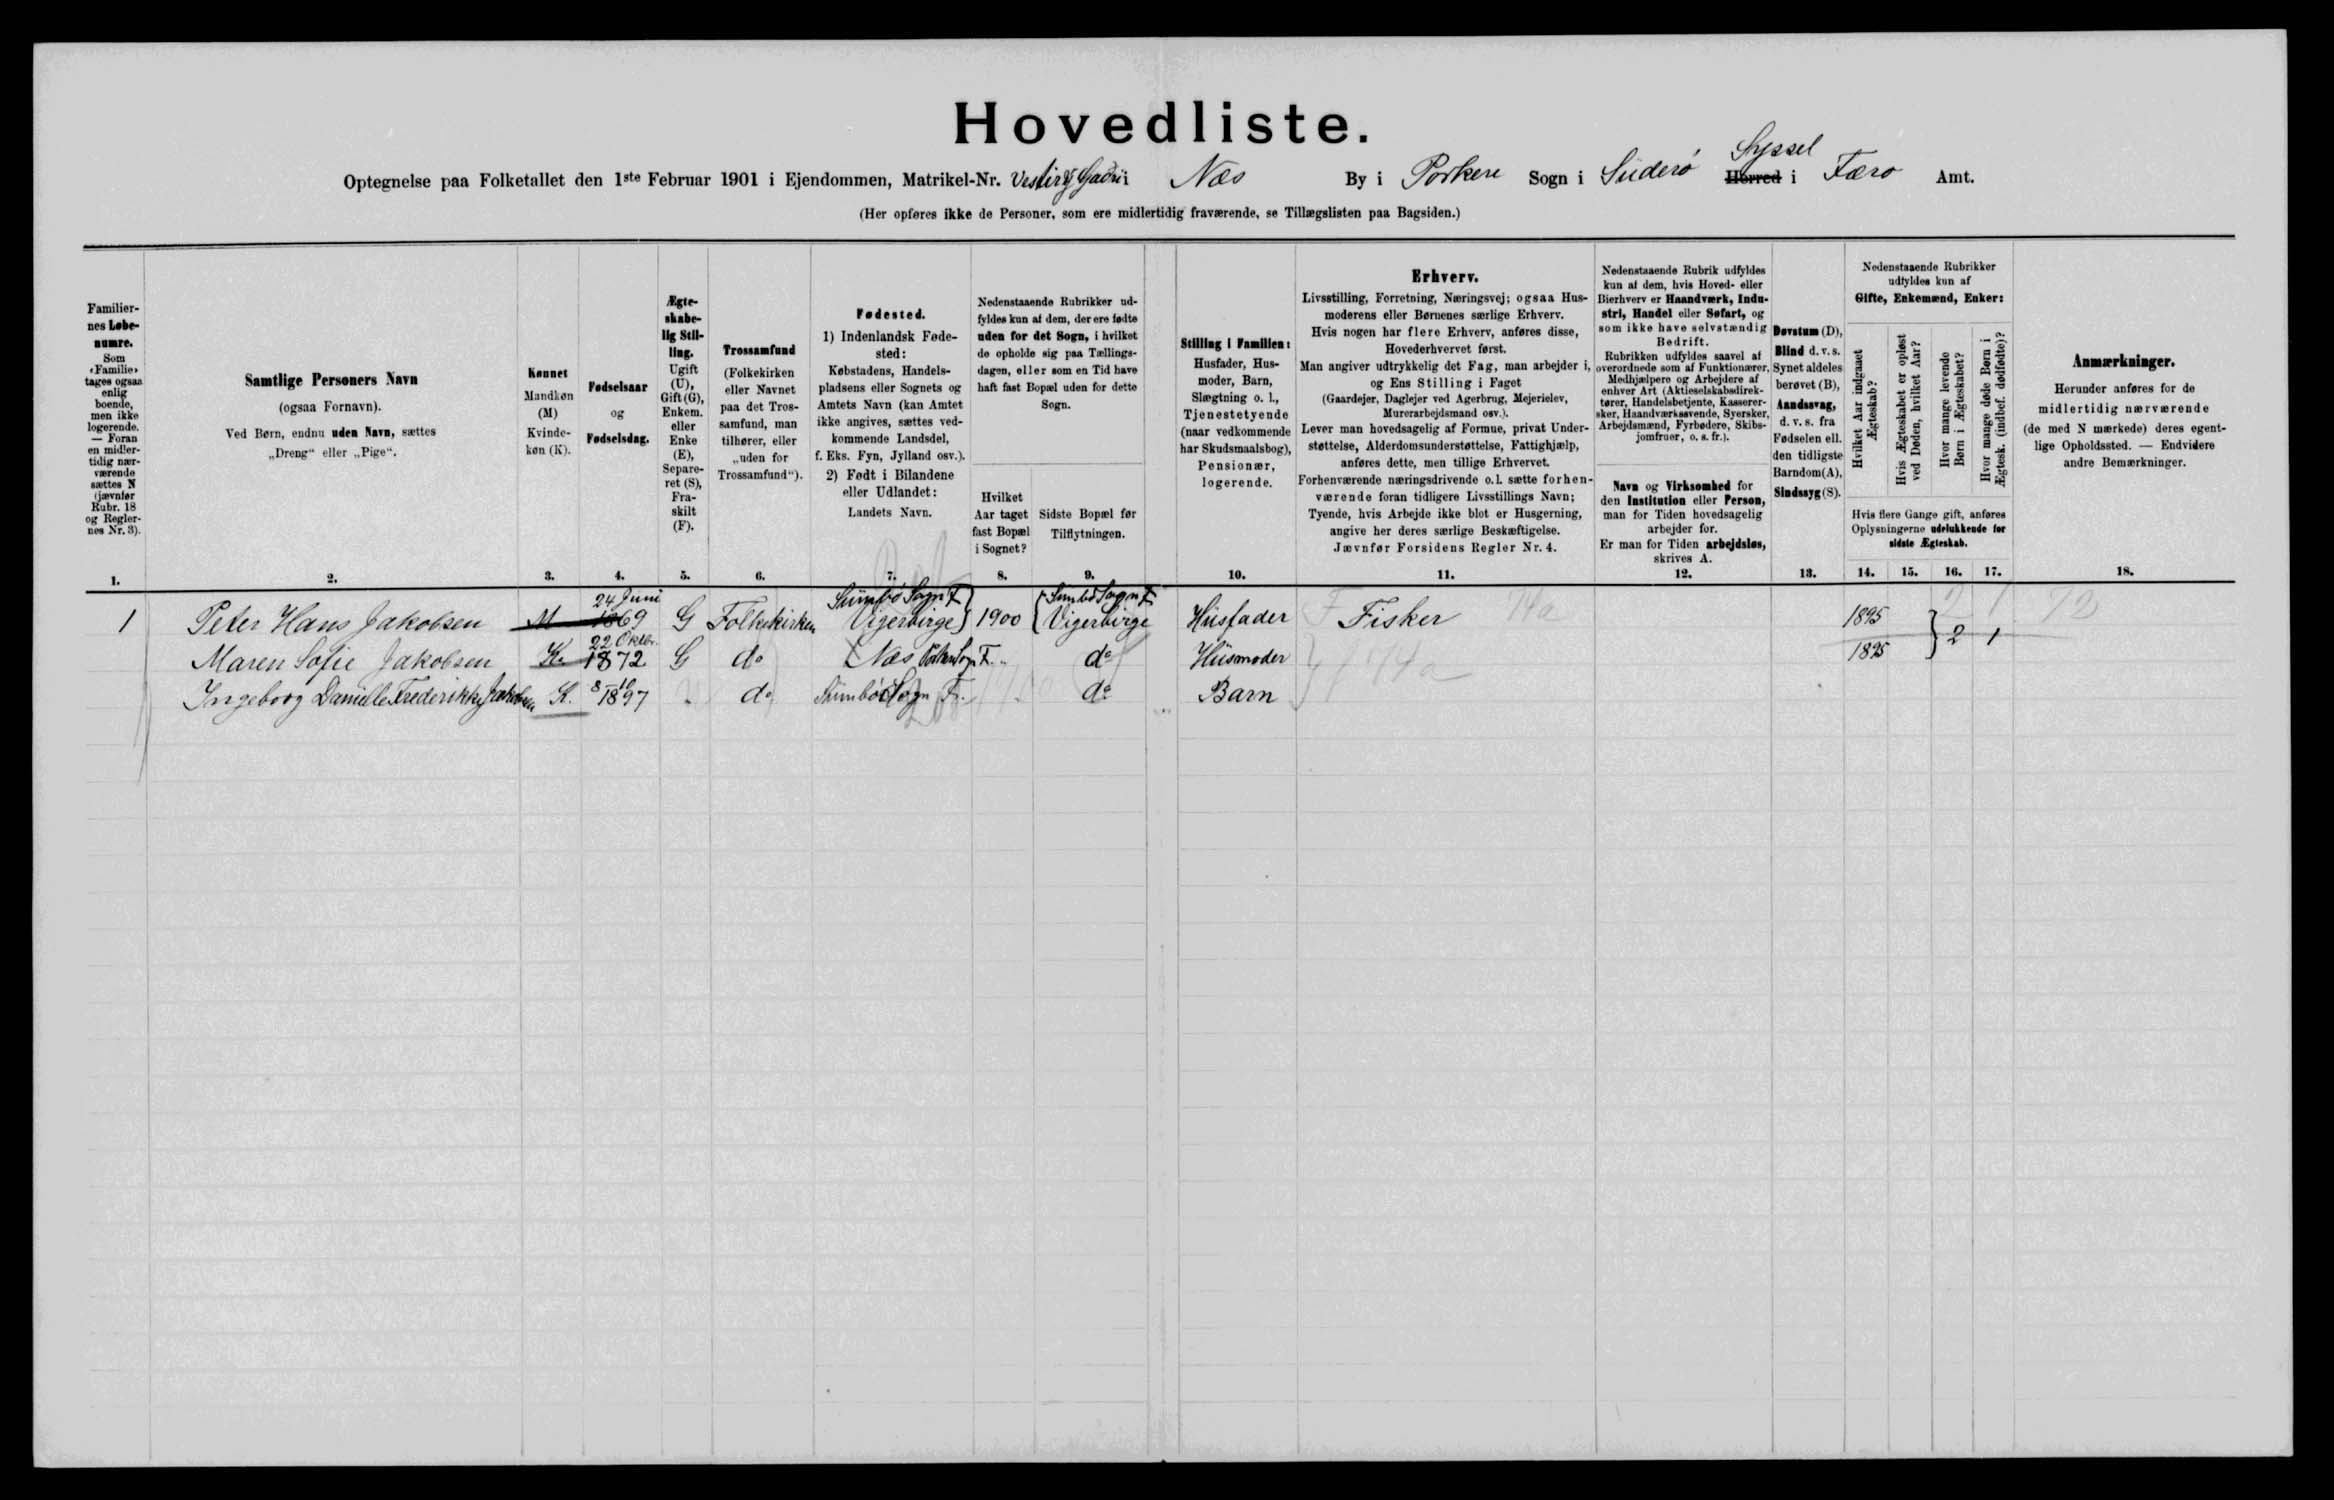 Hovedliste.
Syssel
Optegnelse paa Folketallet den 1ste Februar 1901 i Ejendommen, Matrikel-Nr. Næs By i Porkere Sogn i Suderö Herred i Færo Amt.
(Her opføres ikke de Personer, som ere midlertidig fraværende, se Tillægslisten paa Bagsiden.)
Familiernes Løbenumre.
Som
«Familie»
tages ogsaa
enlig
boende,
men ikke
logerende.
— Foran
en midler-
tidig nær-
værende
sættes N
(jævnfør
Rubr. 18
og Regler-
nes Nr. 3).
1.
Samtlige Personers Navn
(ogsaa Fornavn).
Ved Børn, endnu uden Navn, sættes
„Dreng“ eller „Pige“.
2.
Kønnet
Mandkøn
(M)
Kvinde-
køn (K).
3.
Fødselsaar
og
Fødselsdag.
4.
Ægte-
skabe-
lig Stil-
ling.
Ugift
(U),
Gift (G),
Enkem.
eller
Enke
(E),
Separe-
ret (S),
Fra-
skilt
(F).
5.
Trossamfund
(Folkekirken
eller Navnet
paa det Tros-
samfund, man
tilhører, eller
„uden for
Trossamfund“).
6.
Fødested.
1) Indenlandsk Føde-
sted:
Købstadens, Handels-
pladsens eller Sognets og
Amtets Navn (kan Amtet
ikke angives, sættes ved-
kommende Landsdel,
f. Eks. Fyn, Jylland osv.).
2) Født i Bilandene
eller Udlandet:
Landets Navn.
7.
Nedenstaaende Rubrikker ud-
fyldes kun af dem, der ere fødte
uden for det Sogn, i hvilket
de opholde sig paa Tællings-
dagen, eller som en Tid have
haft fast Bopæl uden for dette
Sogn.
Hvilket
Aar taget
fast Bopæl
i Sognet?
8.
Sidste Bopæl før
Tilflytningen.
9.
Stilling i Familien:
Husfader, Hus-
moder, Barn,
Slægtning o. l.,
Tjenestetyende
(naar vedkommende
har Skudsmaalsbog),
Pensionær,
logerende.
10.
Erhverv.
Livsstilling, Forretning, Næringsvej; ogsaa Hus-
moderens eller Børnenes særlige Erhverv.
Hvis nogen har flere Erhverv, anføres disse,
Hovederhvervet først.
Man angiver udtrykkelig det Fag, man arbejder i,
og Ens Stilling i Faget
(Gaardejer, Daglejer ved Agerbrug, Mejerielev,
Murerarbejdsmand osv.).
Lever man hovedsagelig af Formue, privat Under-
støttelse, Alderdomsunderstøttelse, Fattighjælp,
anføres dette, men tillige Erhvervet.
Forhenværende næringsdrivende o.l. sætte forhen-
værende foran tidligere Livsstillings Navn;
Tyende, hvis Arbejde ikke blot er Husgerning,
angive her deres særlige Beskæftigelse.
Jævnfør Forsidens Regler Nr. 4.
11.
Nedenstaaende Rubrik udfyldes
kun af dem, hvis Hoved- eller
Bierhverv er Haandværk, Indu-
stri, Handel eller Søfart, og
som ikke have selvstændig
Bedrift.
Rubrikken udfyldes saavel af
overordnede som af Funktionærer,
Medhjælpere og Arbejdere af
enhver Art (Aktieselskabsdirek-
tører, Handelsbetjente, Kasserer-
sker, Haandværkssvende, Syersker,
Arbejdsmænd, Fyrbødere, Skibs-
jomfruer, o. s. fr.).
Navn og Virksomhed for
den Institution eller Person,
man for Tiden hovedsagelig
arbejder for.
Er man for Tiden arbejdsløs,
skrives A.
12.
Døvstum (D),
Blind d. v. s.
Synet aldeles
berøvet (B),
Aandssvag,
d. v. s. fra
Fødselen ell.
den tidligste
Barndom (A),
Sindssyg (S).
13.
Nedenstaaende Rubrikker
udfyldes kun af
Gifte, Enkemænd, Enker:
Hvilket Aar indgaaet
Ægteskab?
Hvis Ægteskabet er opløst
ved Døden, hvilket Aar?
Hvor mange levende
Børn i Ægteskabet?
Hvor mange døde Børn i
Ægtesk. (indbef. dødfødte)?
Hvis flere Gange gift, anføres
Oplysningerne udelukkende for
sidste Ægteskab.
14. 15. 16. 17.
Anmærkninger.
Herunder anføres for de
midlertidig nærværende
(de med N mærkede) deres egent-
lige Opholdssted. — Endvidere
andre Bemærkninger.
18.
24 Juni Sumbö Sogn F Sumbö Sogn F
1 Peter Hans Jakobsen M 1869 G Folkekirken Vigerbirge } 1900 { Vigerbirge Husfader F Fisker 74a 1895 2 1 72
22 Oktbr.
Maren Sofie Jakobsen K. 1872 G do Næs Porkere Sogn F. „ do Husmoder 74a 1895 } 2 1
Ingeborg Danielle Frederikke Jakobsen K. 8/10 1897 „ do Sumbö Sogn F. „ do Barn